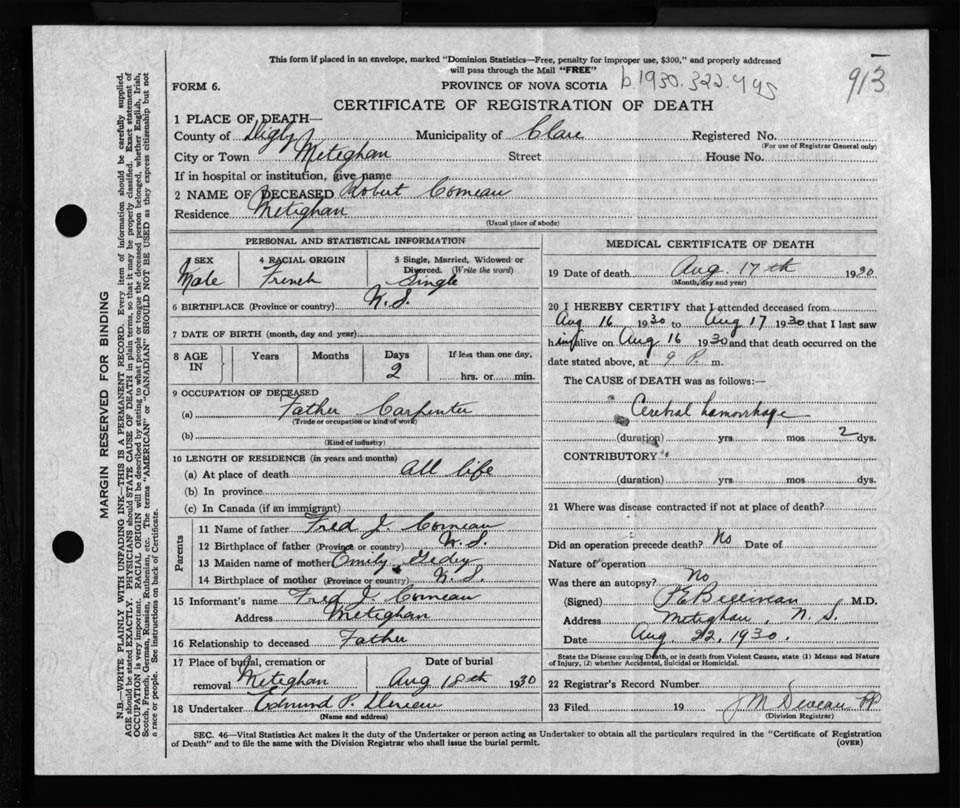 This form if placed in an envelope, marked "Dominion Statistics—Free, penalty for improper use, $300," and properly addressed
will pass through the Mail "FREE"
FORM 6. PROVINCE OF NOVA SCOTIA b.1930.322.495 913
CERTIFICATE OF REGISTRATION OF DEATH
1 PLACE OF DEATH—
County of Digby Municipality of Clare Registered No.
(For use of Registrar General only)
City or Town Meteghan Street House No.
If in hospital or institution, give name
2 NAME OF DECEASED Robert Comeau
Residence Metighan
(Usual place of abode)
PERSONAL AND STATISTICAL INFORMATION
3 SEX 4 RACIAL ORIGIN 5 Single, Married, Widowed or
Divorced. (Write the word)
Male French Single
6 BIRTHPLACE (Province or country) N.S.
7 DATE OF BIRTH (month, day and year)
8 AGE IN Years Months Days If less than one day,
2 hrs. or min.
9 OCCUPATION OF DECEASED
(a) Father Carpenter
(Trade or occupation or kind of work)
(b)
(Kind of industry)
10 LENGTH OF RESIDENCE (in years and months)
(a) At place of death all life
(b) In province
(c) In Canada (if an immigrant)
Parents
11 Name of father Fred J. Comeau
12 Birthplace of father (Province or country) N.S.
13 Maiden name of mother Emily
14 Birthplace of mother (Province or country) N.S.
15 Informant's name Fred J. Comeau
Address Metighan
16 Relationship to deceased Father
17 Place of burial, cremation or Date of burial
removal Meteghan Aug 18th 1930
18 Undertaker Edmund P.
(Name and address)
MEDICAL CERTIFICATE OF DEATH
19 Date of death Aug. 17th 1930
(Month, day and year)
20 I HEREBY CERTIFY that I attended deceased from
Aug 16 1930 to Aug 17 1930 that I last saw
him alive on Aug 16 1930 and that death occurred on the
date stated above, at 9 P. m.
The CAUSE OF DEATH was as follows:—
Cerebral hemorrhage
(duration) yrs mos 2 dys.
CONTRIBUTORY
(duration) yrs. mos dys.
21 Where was disease contracted if not at place of death?
Did an operation precede death? No Date of
Nature of operation
Was there an autopsy? No
(Signed) M.D.
Address Metighan, N.S.
Date Aug. 22, 1930.
State the Disease causing Death, or in death from Violent Causes, state (1) Means and Nature
of Injury, (2) whether Accidental, Suicidal or Homicidal.
22 Registrar's Record Number
23 Filed 19 J M Deveau
(Division Registrar)
SEC. 46—Vital Statistics Act makes it the duty of the Undertaker or person acting as Undertaker to obtain all the particulars required in the "Certificate of Registration
of Death" and to file the same with the Division Registrar who shall issue the burial permit. (OVER)
MARGIN RESERVED FOR BINDING
N.B.—WRITE PLAINLY WITH UNFADING INK—THIS IS A PERMANENT RECORD. Every item of information should be carefully supplied.
AGE should be stated EXACTLY. PHYSICIANS should STATE CAUSE OF DEATH in plain terms, so that it may be properly classified. Exact statement of
OCCUPATION is very important. RACIAL ORIGIN will be described by stating to what people or tongue the deceased person belonged, whether English, Irish,
Scotch, French, German, Russian, Ruthenian, etc. The terms "AMERICAN" or "CANADIAN" SHOULD NOT BE USED as they express citizenship but not
a race or people. See instructions on back of Certificate.